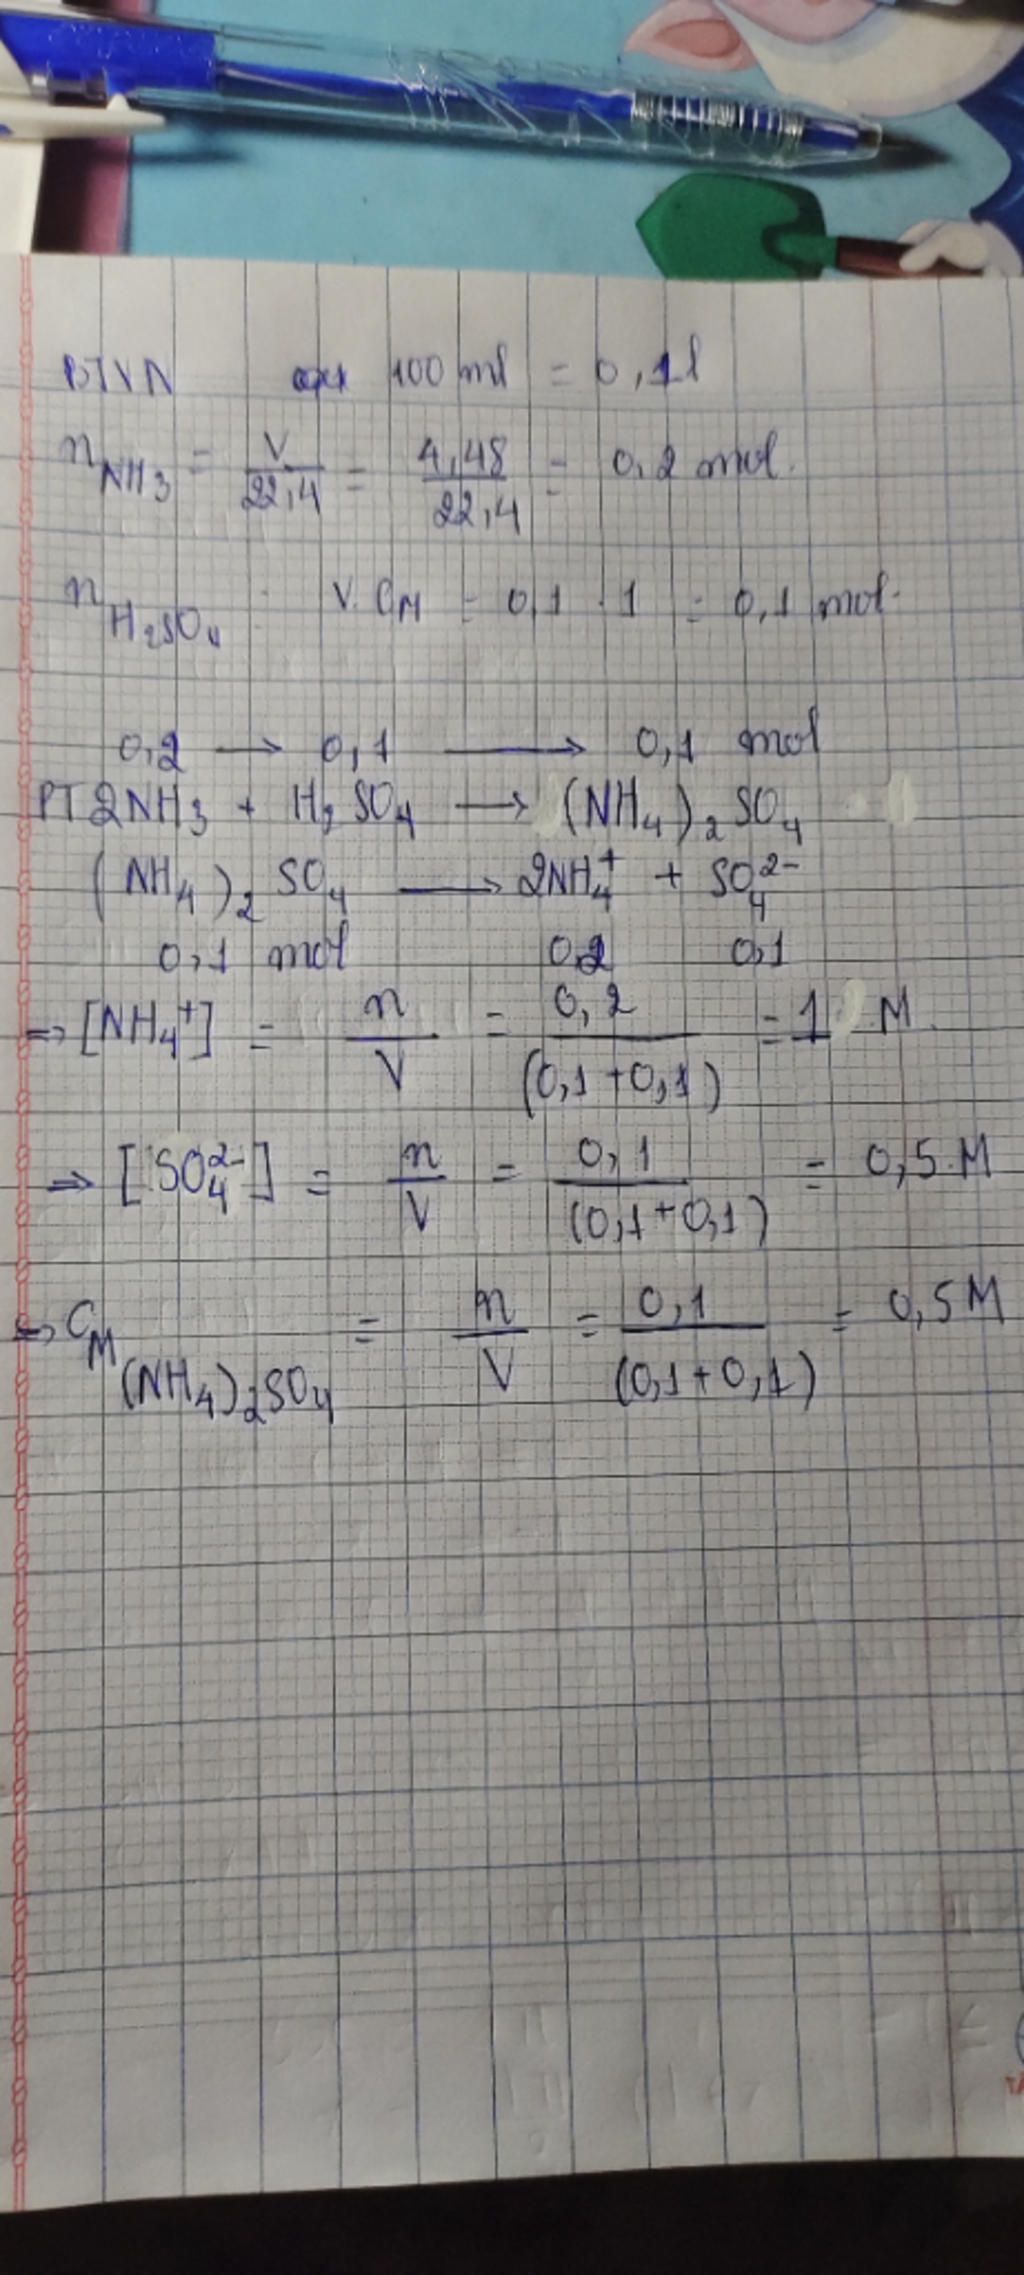 BTVN 100 ml = 0,1l
n NH3 = V/22,4 = 4,48/22,4 = 0,2 mol.
n H2SO4 V. CM = 0,1 . 1 = 0,1 mol.
0,2 → 0,1 → 0,1 mol
PT 2NH3 + H2SO4 → (NH4)2SO4
(NH4)2SO4 → 2NH4+ + SO4 2-
0,1 mol 0,2 0,1
⇒ [NH4+] = n/V = 0,2/(0,1+0,1) = 1 M.
⇒ [SO4 2-] = n/V = 0,1/(0,1+0,1) = 0,5 M
⇒ CM (NH4)2SO4 = n/V = 0,1/(0,1+0,1) = 0,5M